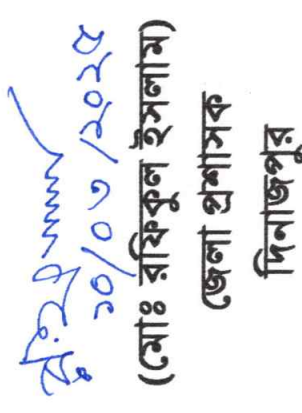 ১০/০৩/২০২৫
(মোঃ রফিকুল ইসলাম)
জেলা প্রশাসক
দিনাজপুর